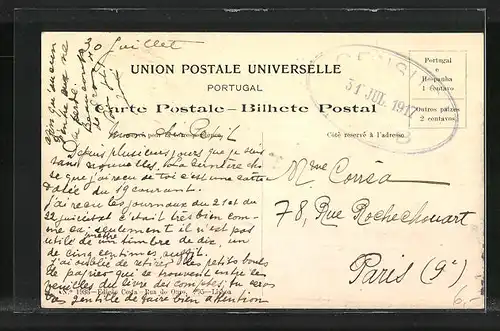 30 Juillet
UNION POSTALE UNIVERSELLE
PORTUGAL
Carte Postale - Bilhete Postal
Portugal
e
Hespanha
1 centavo
Outros paizes
2 centavos
CENSURA
31 JUL. 1917
Côté réservé à l'adresse
mon cher
Depuis plusieurs jours que je suis
sans nouvelles. La dernière
que j'ai reçu de toi c'est une carte
datée du 19 courant.
J'ai reçu les journaux du 21 et du
22 juillet et c'était très bien com-
me ça, seulement il n'est pas
utile de mettre un timbre de dix, un
de cinq centimes suffit.
J'ai oublié de retirer des petits bouts
de papier qui se trouvent entre les
feuilles du livre des comptes, tu seras
bas gentille de faire bien attention
Mme Corrêa
78, Rue Rochechouart
Paris (9e)
N.º 1933 - Edição Costa - Rua do Ouro, 295 - Lisboa
6,-